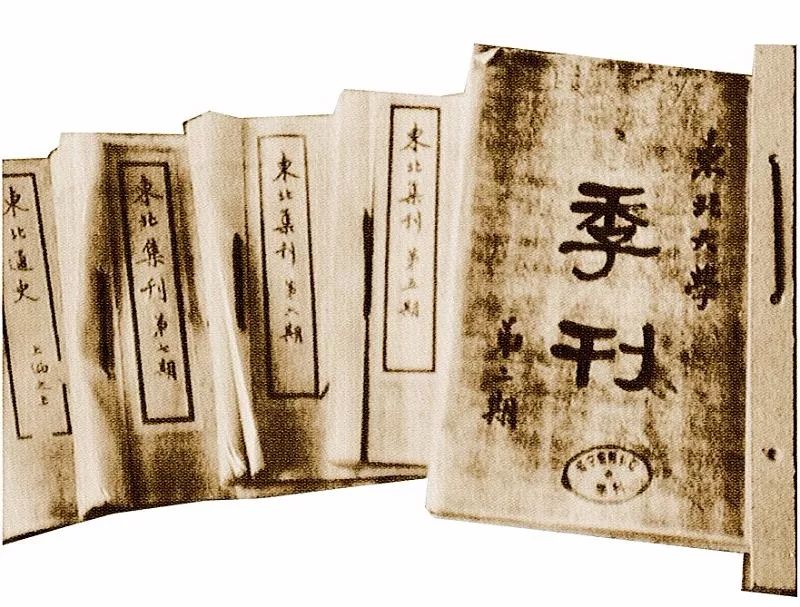 東北大學
季刊
第二期
東北集刊 第五期
東北集刊 第六期
東北集刊 第七期
東北通史
上編